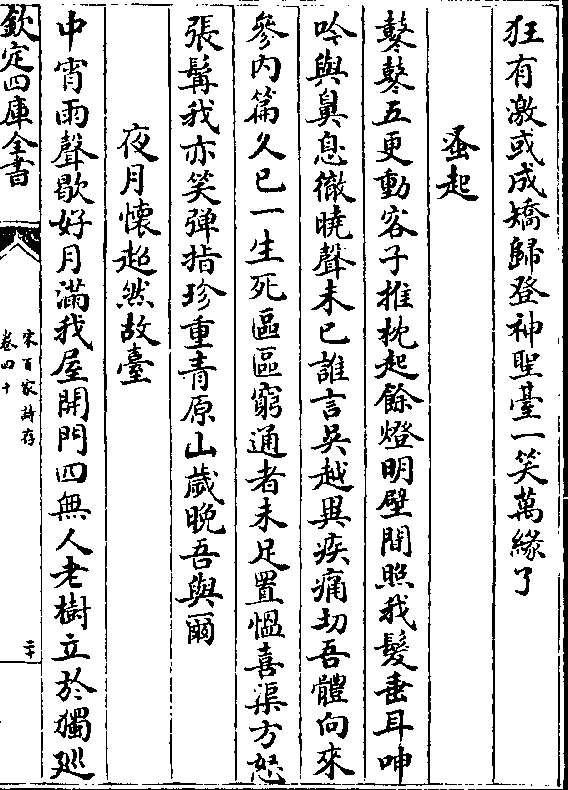 狂有激或成矯歸登神聖臺一笑萬緣了
蚤起
鼕鼕五更動客子推枕起餘燈明壁間照我髮垂耳呻
吟與鼻息徹曉聲未已誰言吳越異疾痛切吾體向來
參內篇久已一生死區區窮通者未足置愠喜渠方怒
張髯我亦笑彈指珍重青原山歲晚吾與爾
夜月懷超然故臺
中宵雨聲歇好月滿我屋開門四無人老樹立於獨廵
欽定四庫全書
宋百家詩存
卷四十
二十